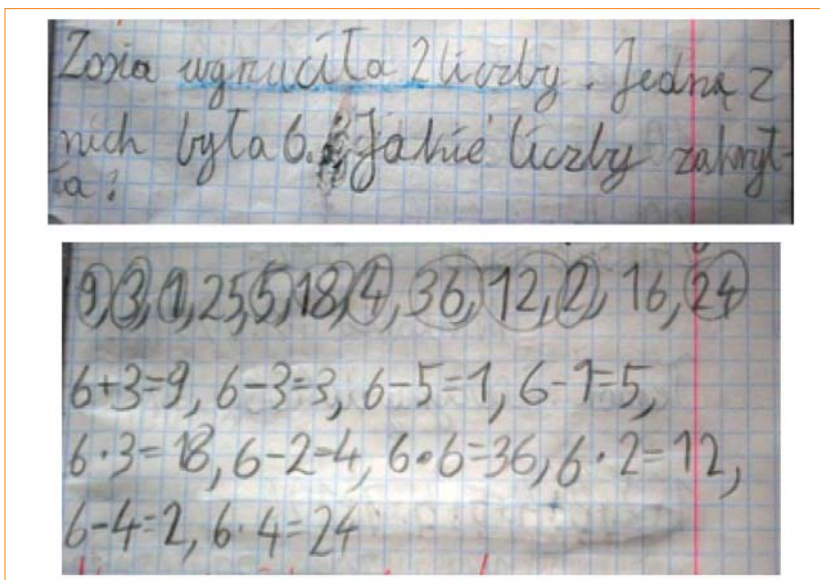 Zosia wyrzuciła 2 liczby. Jedną z
nich była 6. Jakie liczby zakrył-
ła?
9, 3, 1, 25, 5, 18, 4, 36, 12, 2, 16, 24
6+3=9, 6-3=3, 6-5=1, 6-1=5,
6·3=18, 6-2=4, 6·6=36, 6·2=12,
6-4=2, 6·4=24